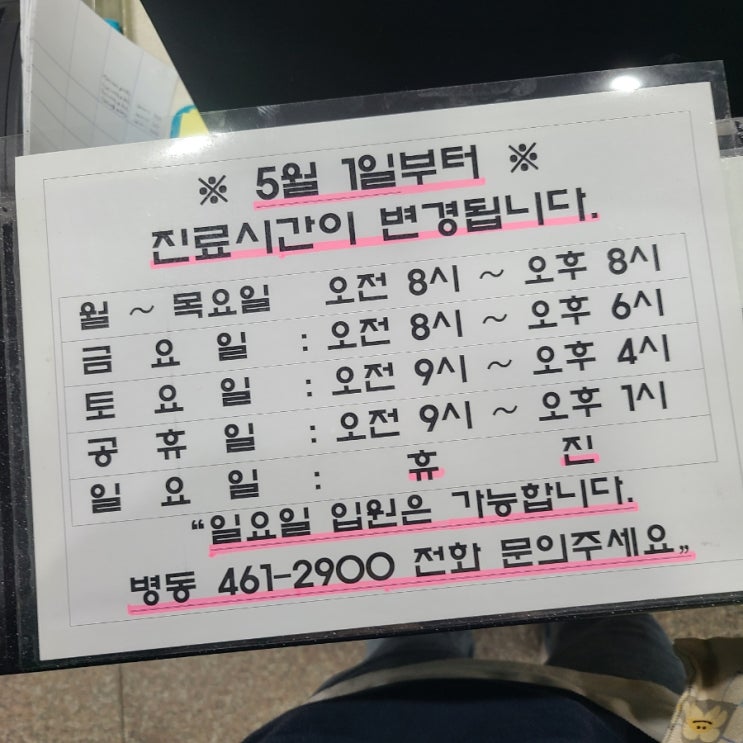 ※ 5월 1일부터 ※
진료시간이 변경됩니다.
월 ~ 목요일 오전 8시 ~ 오후 8시
금 요 일 : 오전 8시 ~ 오후 6시
토 요 일 : 오전 9시 ~ 오후 4시
공 휴 일 : 오전 9시 ~ 오후 1시
일 요 일 : 휴 진
“일요일 입원은 가능합니다.
병동 461-2900 전화 문의주세요„